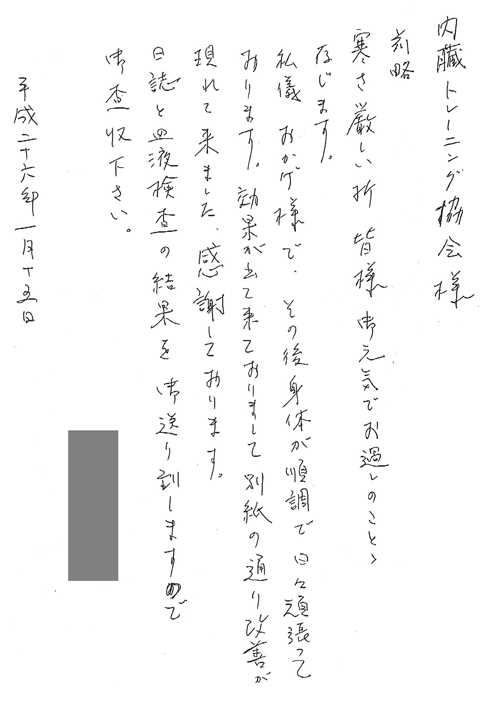 内臓トレーニング協会様
前略
寒さ厳しい折 皆様御元気でお過しのことゝ
存じます。
私儀 おかげ様で、その後身体が順調で日々頑張って
おります。効果が出て来ておりまして別紙の通り改善が
現れて来ました、感謝しております。
日誌と血液検査の結果を御送り到しますので
御査収下さい。
平成二十六年一月十五日